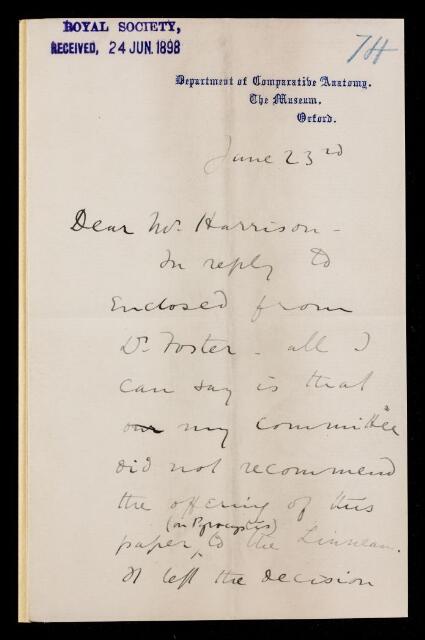 ROYAL SOCIETY,
RECEIVED, 24 JUN. 1898
74
Department of Comparative Anatomy.
The Museum.
Oxford.
June 23rd
Dear Mr. Harrison -
In reply to
Enclosed from
Dr. Foster - all I
can say is that
our my committee
did not recommend
the offering of this
(on Pyrocystis)
paper ‸ to the Linnean.
It left the decision